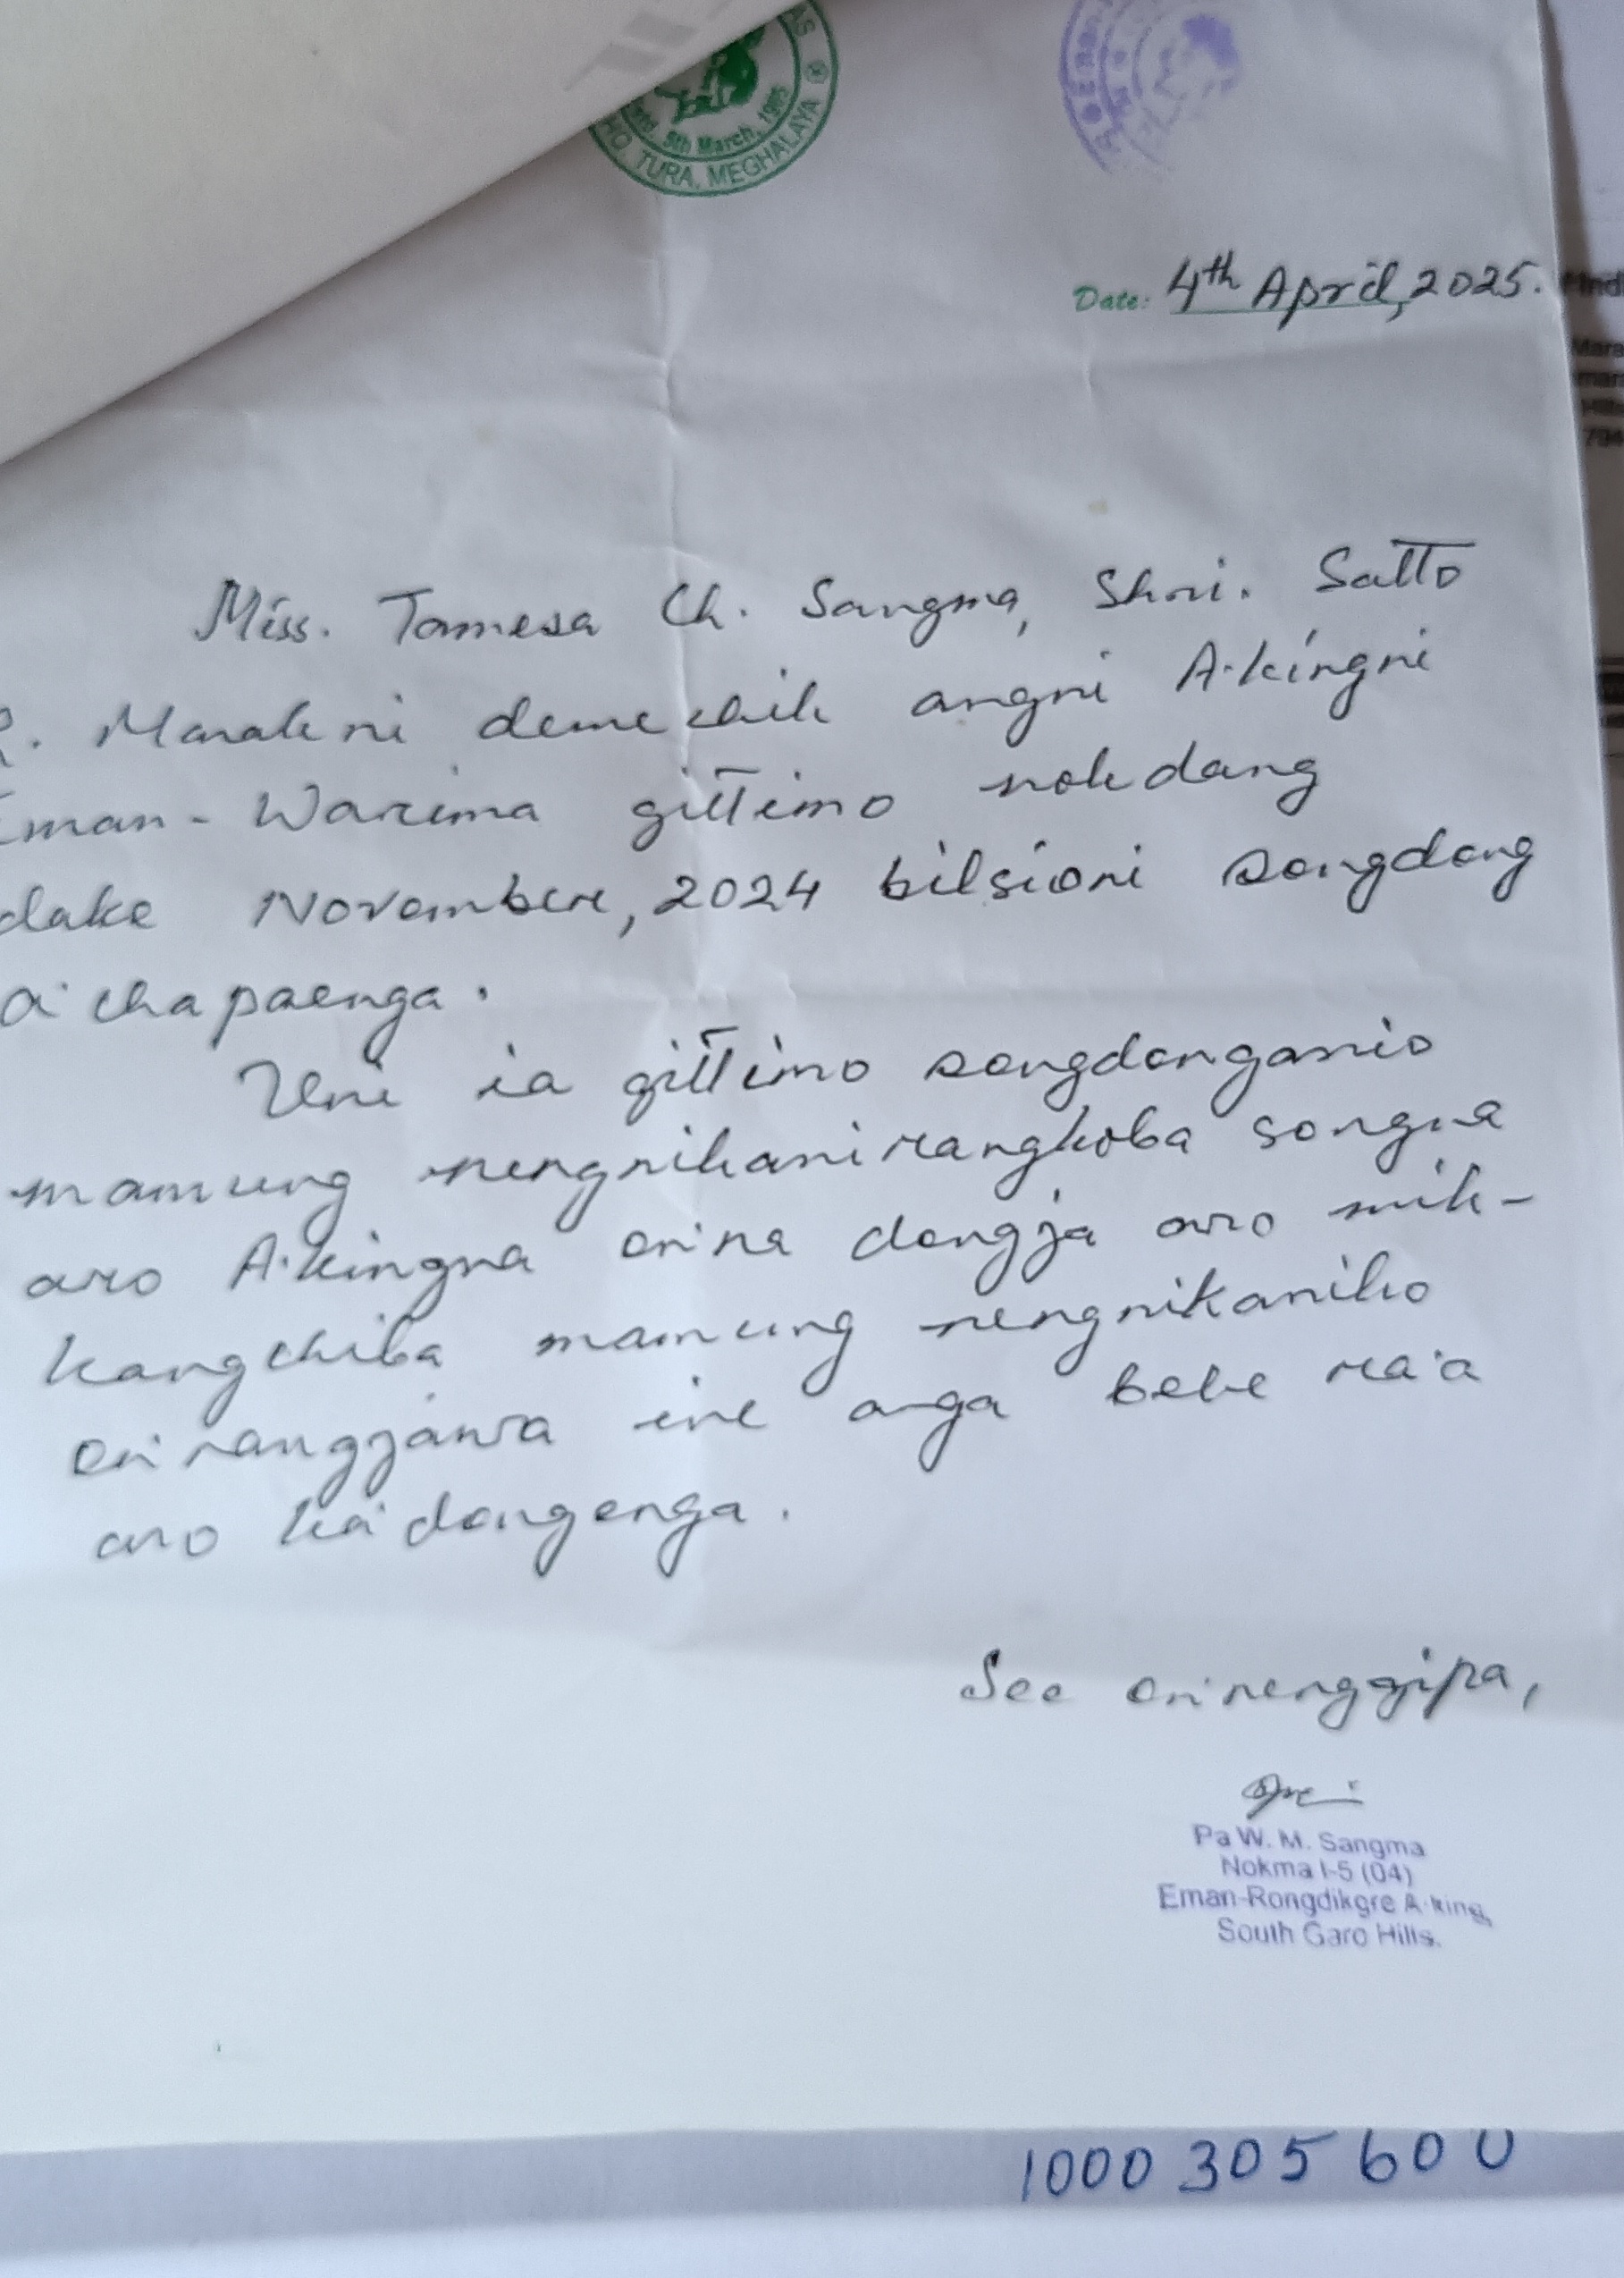 5th March, 1995
HO. TURA, MEGHALAYA
Date: 4th April, 2025.
Miss. Tomesa Ch. Sangma, Shri. Satto
R. Marakni demechik angni A·kingni
Eman-Warima gittimo nokdang
dake November, 2024 bilsioni songdong
a·chapaenga.
Uni ia gittimo songdonganio
mamung nengnikanirangkoba songna
aro A·kingna on·na dongja aro mik-
kangchiba mamung nengnikaniko
on·rangjawa ine anga bebe ra·a
aro ka·dongenga.
See on·nenggipa,
Pa W. M. Sangma
Nokma I-5 (04)
Eman-Rongdikgre A·king,
South Garo Hills.
1000 305 60